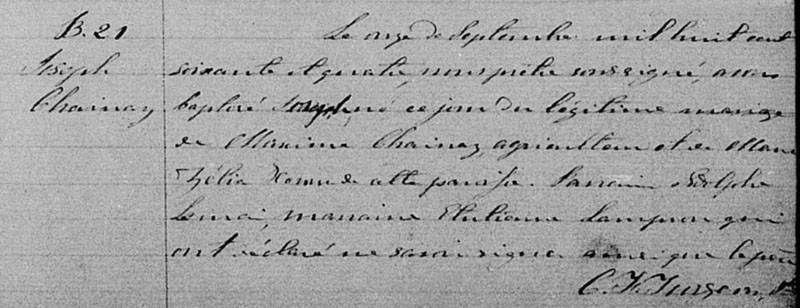 B. 21
Joseph
Chainay
Le onze de Septembre mil huit cent
soixante et quatre, nous prêtre soussigné, avons
baptisé Joseph, né ce jour du légitime mariage
de Maxime Chainay, agriculteur et de Marie
Zélia de cette paroisse. Parrain Adolphe
Lemai, marraine Lampron qui
ont déclaré ne savoir signer ainsi que le père